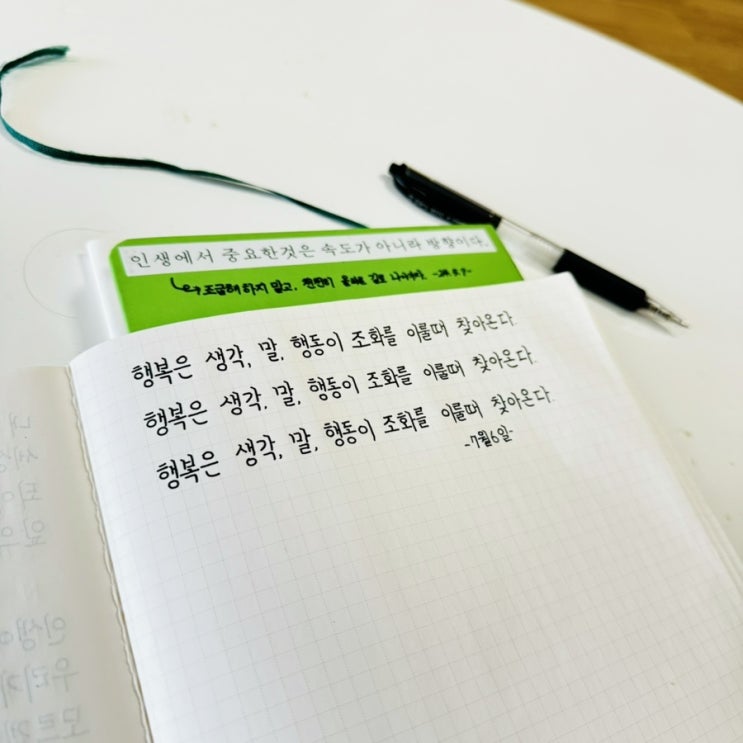 인생에서 중요한것은 속도가 아니라 방향이다.
조급해 하지 말고, 천천히
행복은 생각, 말, 행동이 조화를 이룰때 찾아온다.
행복은 생각, 말, 행동이 조화를 이룰때 찾아온다.
행복은 생각, 말, 행동이 조화를 이룰때 찾아온다.
-7월6일-